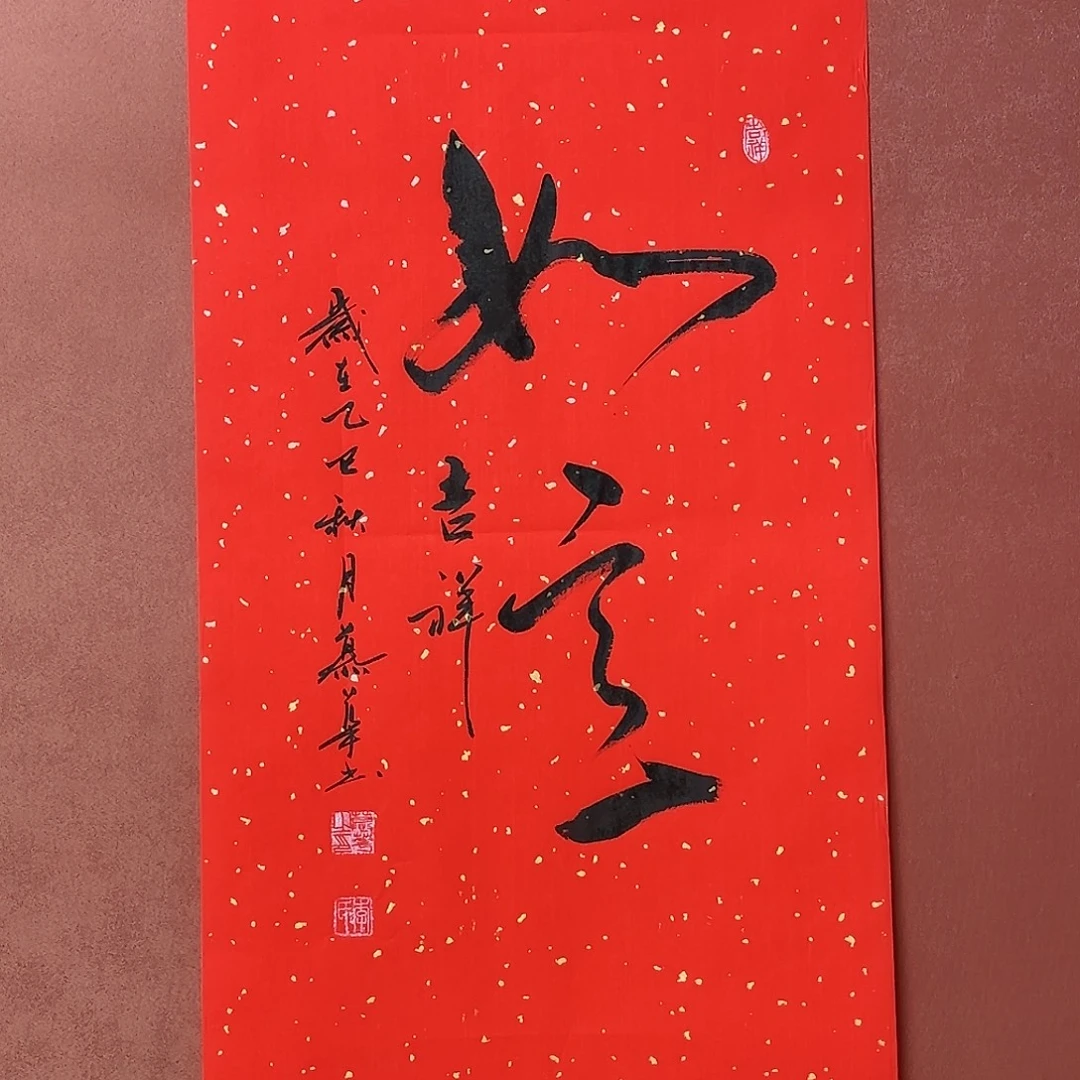 如意
吉祥
歲在乙巳秋月慕華书
吉祥